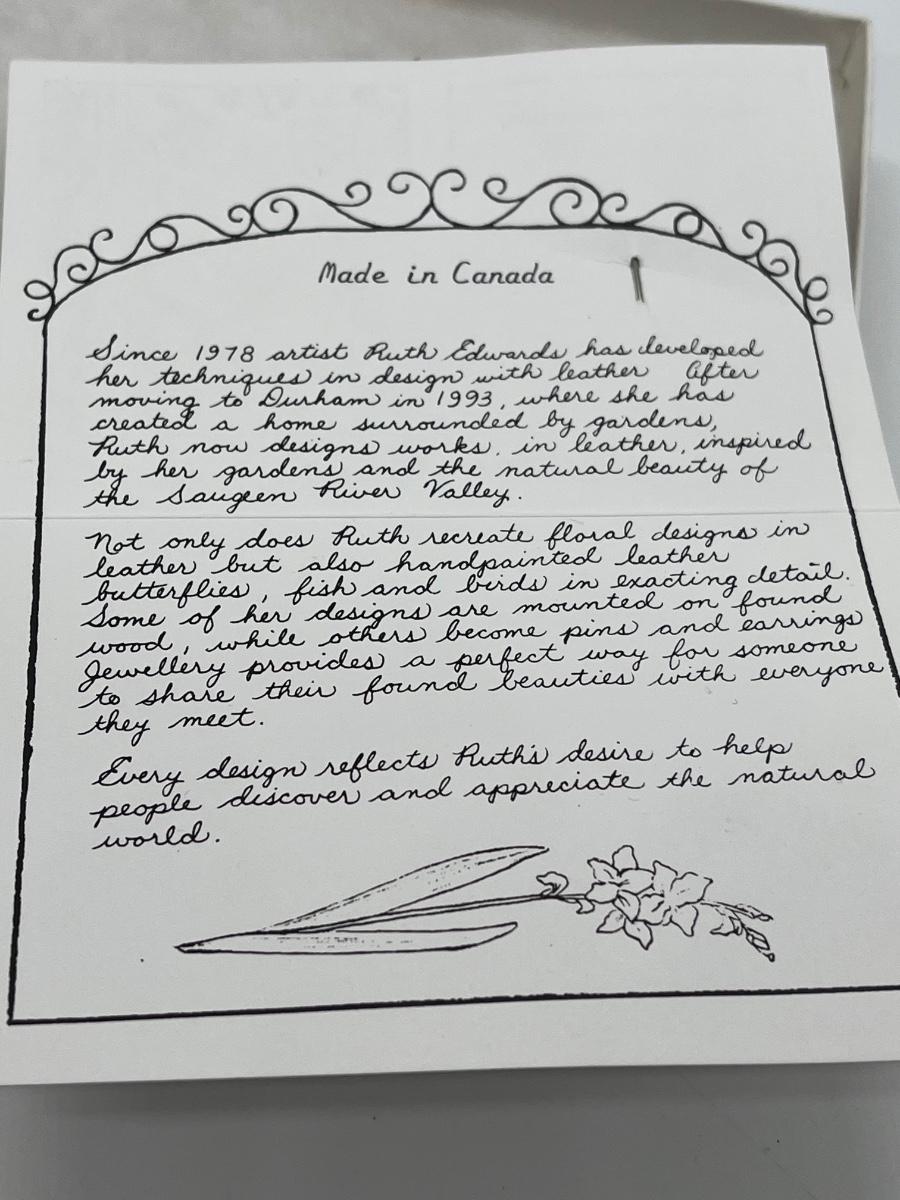 Made in Canada
Since 1978 artist Ruth Edwards has developed
her techniques in design with leather After
moving to Durham in 1993, where she has
created a home surrounded by gardens,
Ruth now designs works, in leather, inspired
by her gardens and the natural beauty of
the Saugeen River Valley.
Not only does Ruth recreate floral designs in
leather but also handpainted leather
butterflies, fish and birds in exacting detail.
Some of her designs are mounted on found
wood, while others become pins and earrings
Jewellery provides a perfect way for someone
to share their found beauties with everyone
they meet.
Every design reflects Ruth's desire to help
people discover and appreciate the natural
world.